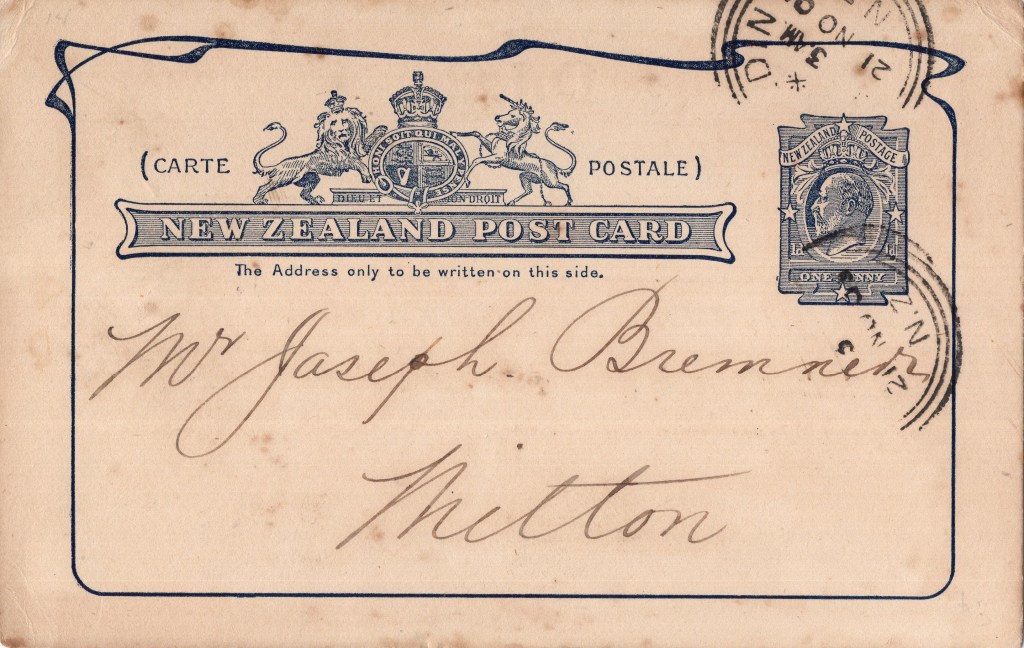 DIN
3 AM
21 NO 0
Z.N
(CARTE POSTALE)
HONI SOIT QUI MAL
DIEU ET MON DROIT
NEW ZEALAND POST CARD
The Address only to be written on this side.
NEW ZEALAND POSTAGE
1d 1d
ONE PENNY
N.Z
NO
21
Mr Joseph Bremner
Milton